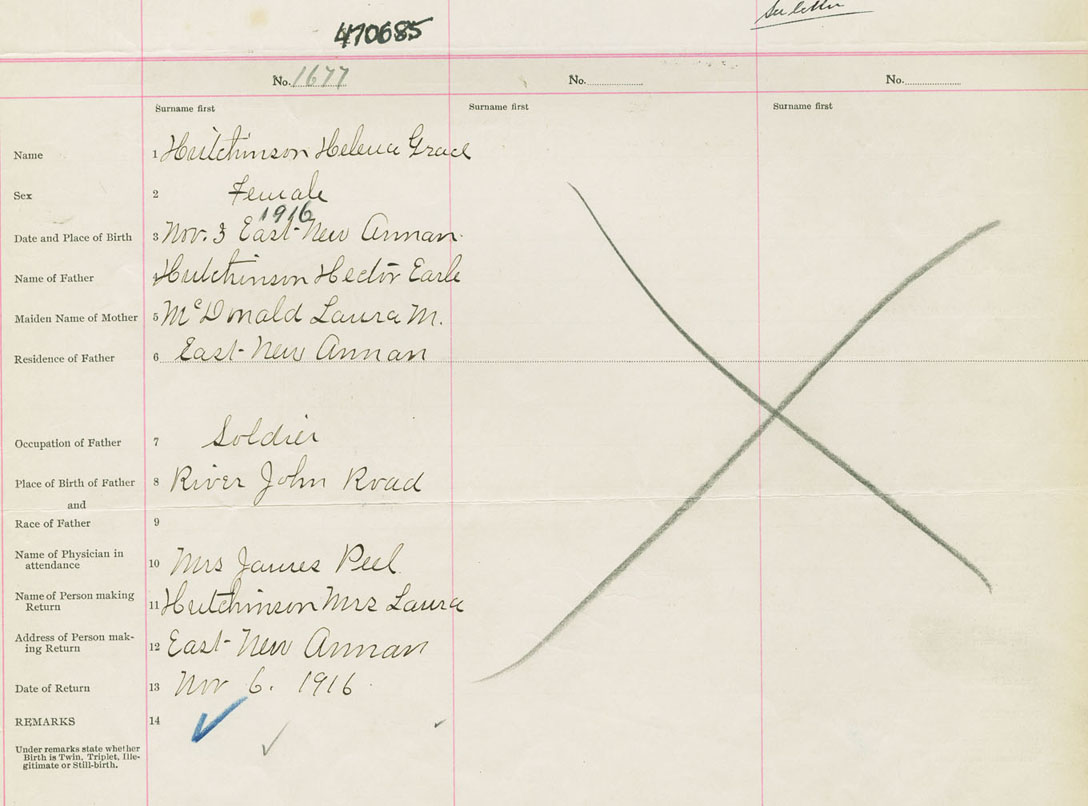 See letter
470685
No. 1677 No. No.
Surname first Surname first Surname first
Name 1 Hutchinson Helena Grace
Sex 2 Female
1916
Date and Place of Birth 3 Nov. 3 East New Annan
Name of Father 4 Hutchinson Hector Earle
Maiden Name of Mother 5 McDonald Laura M.
Residence of Father 6 East New Annan
Occupation of Father 7 Soldier
Place of Birth of Father 8 River John Road
and
Race of Father 9
Name of Physician in
attendance 10 Mrs James Peel
Name of Person making
Return 11 Hutchinson Mrs Laura
Address of Person mak-
ing Return 12 East New Annan
Date of Return 13 Nov 6. 1916
REMARKS 14
Under remarks state whether
Birth is Twin, Triplet, Ille-
gitimate or Still-birth.